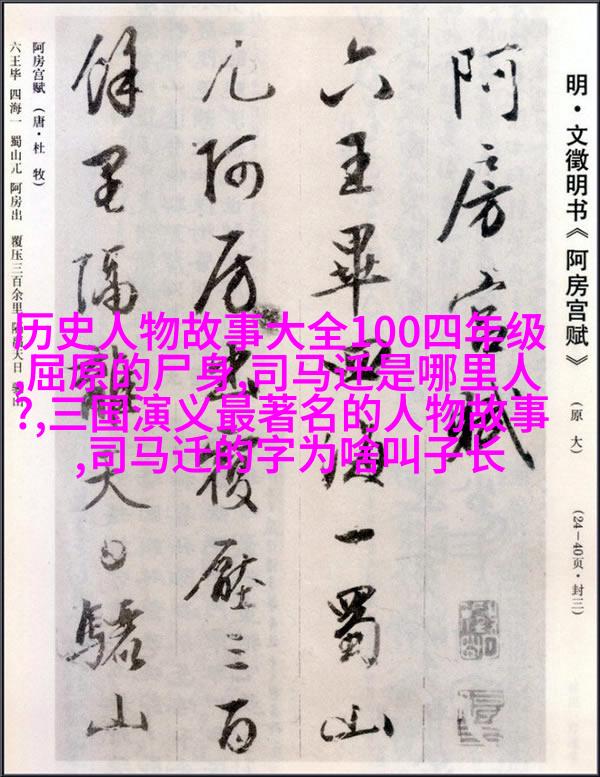 明·文徵明书《阿房宫赋》（原大）（24—40页·封三）
阿房宮賦
六王畢四海一蜀山
兀阿房出覆壓三百
餘里隔離天日驪山
阿房宫赋（唐·杜牧）
六王毕 四海一 蜀山兀 阿房出 覆压三百余里 天日
历史人物故事大全100四年级
,屈原的尸身,司马迁是哪里人
?,三国演义最著名的人物故事
,司马迁的字为啥叫子长